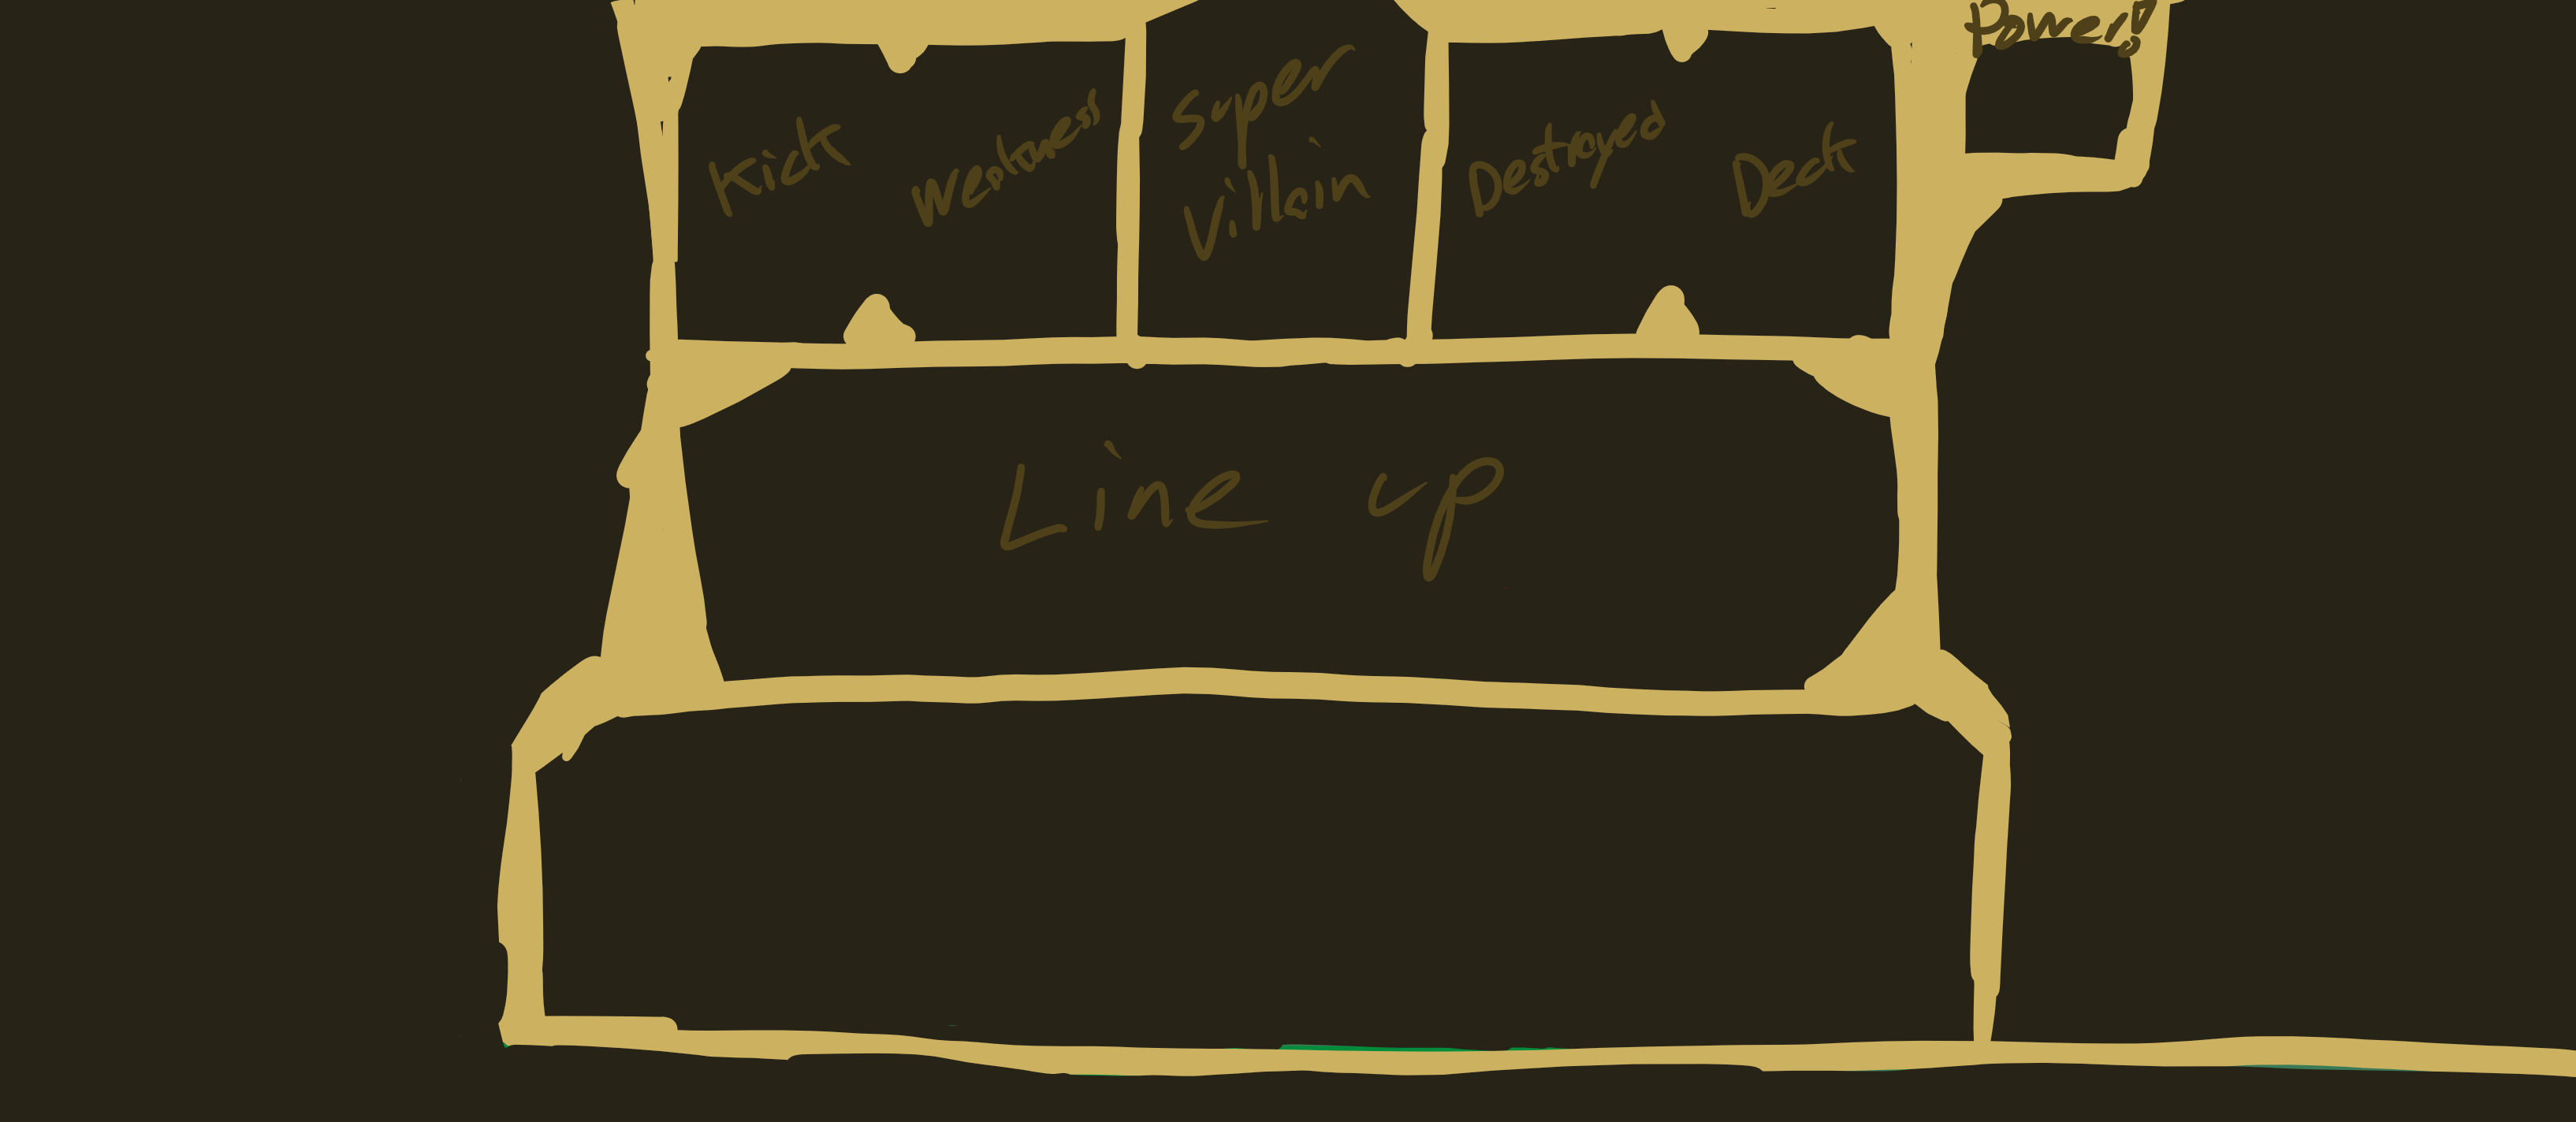 Power
Kick Weakness Super Villain Destroyed Deck
Line up